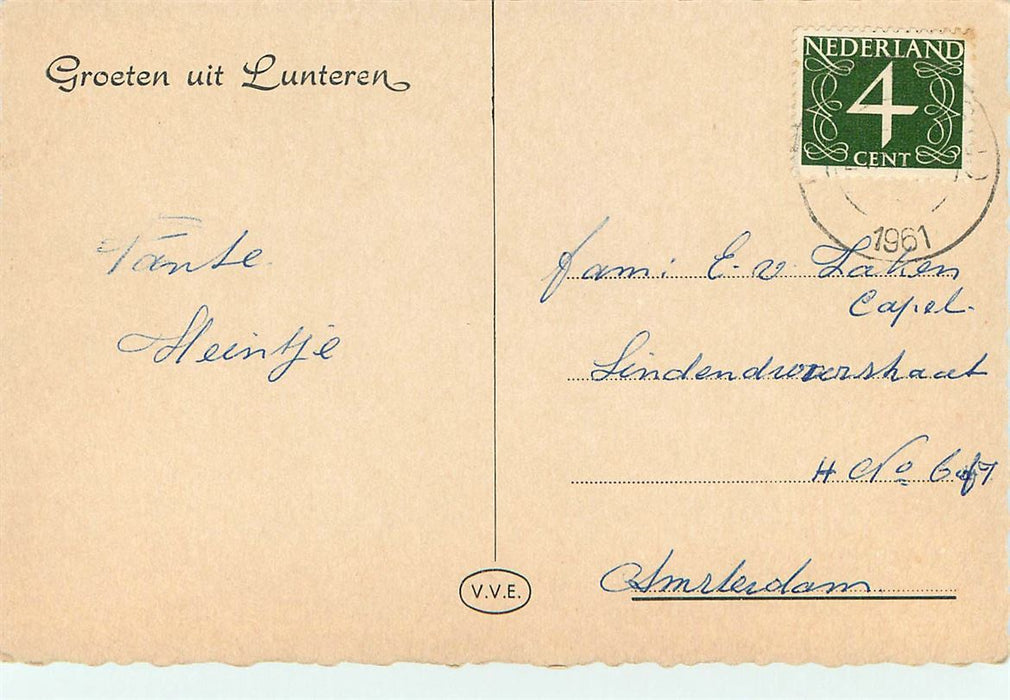 Groeten uit Lunteren
Tante
Heintje
NEDERLAND
4
CENT
1961
fam: E. v. Laken
Capel.
H No
Amsterdam.
V.V.E.